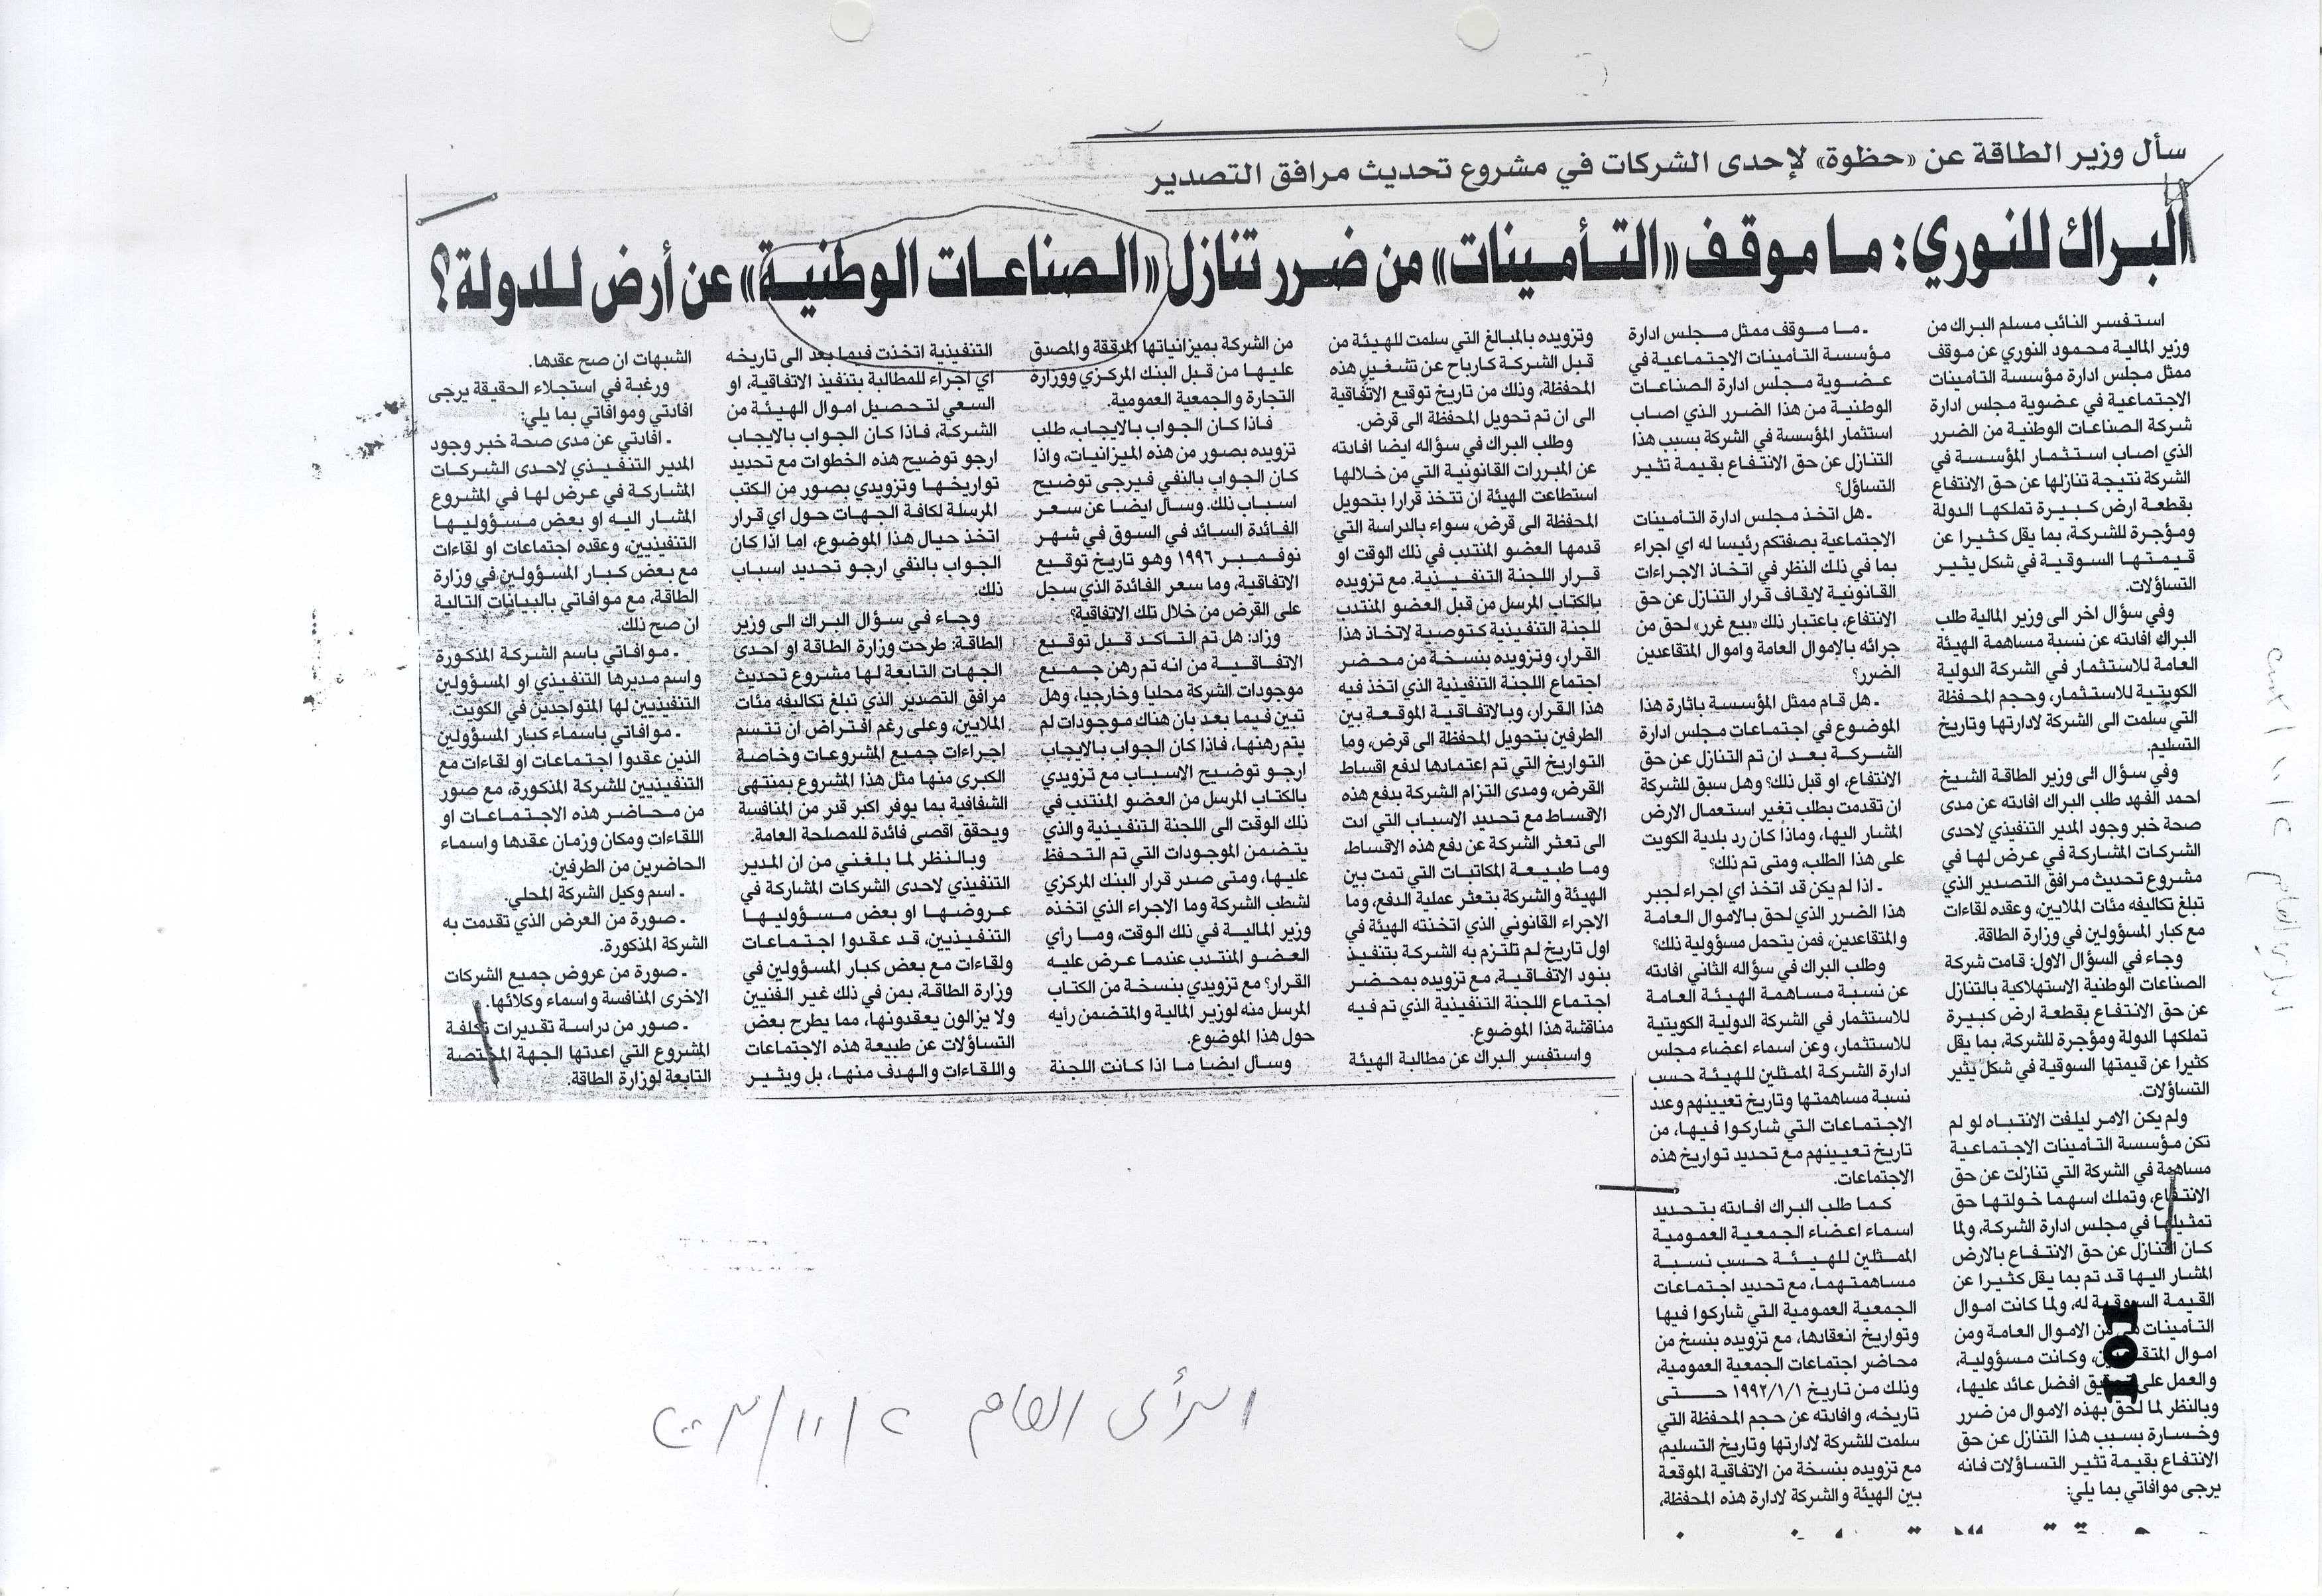 سأل وزير الطاقة عن «حظوة» لإحدى الشركات في مشروع تحديث مرافق التصدير
البراك للنوري: ما موقف «التأمينات» من ضرر تنازل «الصناعات الوطنية» عن أرض للدولة؟
استفسر النائب مسلم البراك من
وزير المالية محمود النوري عن موقف
ممثل مجلس ادارة مؤسسة التأمينات
الاجتماعية في عضوية مجلس ادارة
شركة الصناعات الوطنية من الضرر
الذي اصاب استثمار المؤسسة في
الشركة نتيجة تنازلها عن حق الانتفاع
بقطعة ارض كبيرة تملكها الدولة
ومؤجرة للشركة، بما يقل كثيرا عن
قيمتها السوقية في شكل يثير
التساؤلات.
وفي سؤال اخر الى وزير المالية طلب
البراك افادته عن نسبة مساهمة الهيئة
العامة للاستثمار في الشركة الدولية
الكويتية للاستثمار، وحجم المحفظة
التي سلمت الى الشركة لادارتها وتاريخ
التسليم.
وفي سؤال الى وزير الطاقة الشيخ
احمد الفهد طلب البراك افادته عن مدى
صحة خبر وجود المدير التنفيذي لاحدى
الشركات المشاركة في عرض لها في
مشروع تحديث مرافق التصدير الذي
تبلغ تكاليفه مئات الملايين، وعقده لقاءات
مع كبار المسؤولين في وزارة الطاقة.
وجاء في السؤال الاول: قامت شركة
الصناعات الوطنية الاستهلاكية بالتنازل
عن حق الانتفاع بقطعة ارض كبيرة
تملكها الدولة ومؤجرة للشركة، بما يقل
كثيرا عن قيمتها السوقية في شكل يثير
التساؤلات.
ولم يكن الامر ليلفت الانتباه لو لم
تكن مؤسسة التأمينات الاجتماعية
مساهمة في الشركة التي تنازلت عن حق
الانتفاع، وتملك اسهما خولتها حق
تمثيلها في مجلس ادارة الشركة، ولما
كان التنازل عن حق الانتفاع بالارض
المشار اليها قد تم بما يقل كثيرا عن
القيمة السوقية له، ولما كانت اموال
التأمينات هي من الاموال العامة ومن
اموال المتقاعدين، وكانت مسؤولية،
والعمل على تحقيق افضل عائد عليها،
وبالنظر لما لحق بهذه الاموال من ضرر
وخسارة بسبب هذا التنازل عن حق
الانتفاع بقيمة تثير التساؤلات فانه
يرجى موافاتي بما يلي:
ـ ما موقف ممثل مجلس ادارة
مؤسسة التأمينات الاجتماعية في
عضوية مجلس ادارة الصناعات
الوطنية من هذا الضرر الذي اصاب
استثمار المؤسسة في الشركة بسبب هذا
التنازل عن حق الانتفاع بقيمة تثير
التساؤل؟
ـ هل اتخذ مجلس ادارة التأمينات
الاجتماعية بصفتكم رئيسا له اي اجراء
بما في ذلك النظر في اتخاذ الاجراءات
القانونية لايقاف قرار التنازل عن حق
الانتفاع، باعتبار ذلك «بيع غرر» لحق من
جرائه بالاموال العامة واموال المتقاعدين
الضرر؟
ـ هل قام ممثل المؤسسة باثارة هذا
الموضوع في اجتماعات مجلس ادارة
الشركة بعد ان تم التنازل عن حق
الانتفاع، او قبل ذلك؟ وهل سبق للشركة
ان تقدمت بطلب تغير استعمال الارض
المشار اليها، وماذا كان رد بلدية الكويت
على هذا الطلب، ومتى تم ذلك؟
ـ اذا لم يكن قد اتخذ اي اجراء لجبر
هذا الضرر الذي لحق بالاموال العامة
والمتقاعدين، فمن يتحمل مسؤولية ذلك؟
وطلب البراك في سؤاله الثاني افادته
عن نسبة مساهمة الهيئة العامة
للاستثمار في الشركة الدولية الكويتية
للاستثمار، وعن اسماء اعضاء مجلس
ادارة الشركة الممثلين للهيئة حسب
نسبة مساهمتها وتاريخ تعيينهم وعدد
الاجتماعات التي شاركوا فيها، من
تاريخ تعيينهم مع تحديد تواريخ هذه
الاجتماعات.
كما طلب البراك افادته بتحديد
اسماء اعضاء الجمعية العمومية
الممثلين للهيئة حسب نسبة
مساهمتهما، مع تحديد اجتماعات
الجمعية العمومية التي شاركوا فيها
وتواريخ انعقادها، مع تزويده بنسخ من
محاضر اجتماعات الجمعية العمومية،
وذلك من تاريخ ١٩٩٢/١/١ حتى
تاريخه، وافادته عن حجم المحفظة التي
سلمت للشركة لادارتها وتاريخ التسليم،
مع تزويده بنسخة من الاتفاقية الموقعة
بين الهيئة والشركة لادارة هذه المحفظة،
وتزويده بالمبالغ التي سلمت للهيئة من
قبل الشركة كارباح عن تشغيل هذه
المحفظة، وذلك من تاريخ توقيع الاتفاقية
الى ان تم تحويل المحفظة الى قرض.
وطلب البراك في سؤاله ايضا افادته
عن المبررات القانونية التي من خلالها
استطاعت الهيئة ان تتخذ قرارا بتحويل
المحفظة الى قرض، سواء بالدراسة التي
قدمها العضو المنتدب في ذلك الوقت او
قرار اللجنة التنفيذية. مع تزويده
بالكتاب المرسل من قبل العضو المنتدب
للجنة التنفيذية كتوصية لاتخاذ هذا
القرار، وتزويده بنسخة من محضر
اجتماع اللجنة التنفيذية الذي اتخذ فيه
هذا القرار، وبالاتفاقية الموقعة بين
الطرفين بتحويل المحفظة الى قرض، وما
التواريخ التي تم اعتمادها لدفع اقساط
القرض، ومدى التزام الشركة بدفع هذه
الاقساط مع تحديد الاسباب التي ادت
الى تعثر الشركة عن دفع هذه الاقساط،
وما طبيعة المكاتبات التي تمت بين
الهيئة والشركة بتعثر عملية الدفع، وما
الاجراء القانوني الذي اتخذته الهيئة في
اول تاريخ لم تلتزم به الشركة بتنفيذ
بنود الاتفاقية، مع تزويده بمحضر
اجتماع اللجنة التنفيذية الذي تم فيه
مناقشة هذا الموضوع.
واستفسر البراك عن مطالبة الهيئة
من الشركة بميزانياتها المدققة والمصدق
عليها من قبل البنك المركزي ووزارة
التجارة والجمعية العمومية.
فاذا كان الجواب بالايجاب، طلب
تزويده بصور من هذه الميزانيات، واذا
كان الجواب بالنفي فيرجى توضيح
اسباب ذلك. وسأل ايضا عن سعر
الفائدة السائد في السوق في شهر
نوفمبر ١٩٩٦ وهو تاريخ توقيع
الاتفاقية، وما سعر الفائدة الذي سجل
على القرض من خلال تلك الاتفاقية؟
وزاد: هل تم التأكد قبل توقيع
الاتفاقية من انه تم رهن جميع
موجودات الشركة محليا وخارجيا، وهل
تبين فيما بعد بان هناك موجودات لم
يتم رهنها، فاذا كان الجواب بالايجاب
ارجو توضيح الاسباب مع تزويدي
بالكتاب المرسل من العضو المنتدب في
ذلك الوقت الى اللجنة التنفيذية والذي
يتضمن الموجودات التي تم التحفظ
عليها، ومتى صدر قرار البنك المركزي
لشطب الشركة وما الاجراء الذي اتخذه
وزير المالية في ذلك الوقت، وما رأي
العضو المنتدب عندما عرض عليه
القرار؟ مع تزويدي بنسخة من الكتاب
المرسل منه لوزير المالية والمتضمن رأيه
حول هذا الموضوع.
وسأل ايضا ما اذا كانت اللجنة
التنفيذية اتخذت فيما بعد الى تاريخه
اي اجراء للمطالبة بتنفيذ الاتفاقية، او
السعي لتحصيل اموال الهيئة من
الشركة، فاذا كان الجواب بالايجاب
ارجو توضيح هذه الخطوات مع تحديد
تواريخها وتزويدي بصور من الكتب
المرسلة لكافة الجهات حول اي قرار
اتخذ حيال هذا الموضوع، اما اذا كان
الجواب بالنفي ارجو تحديد اسباب
ذلك.
وجاء في سؤال البراك الى وزير
الطاقة: طرحت وزارة الطاقة او احدى
الجهات التابعة لها مشروع تحديث
مرافق التصدير الذي تبلغ تكاليفه مئات
الملايين، وعلى رغم افتراض ان تتسم
اجراءات جميع المشروعات وخاصة
الكبرى منها مثل هذا المشروع بمنتهى
الشفافية بما يوفر اكبر قدر من المنافسة
ويحقق اقصى فائدة للمصلحة العامة.
وبالنظر لما بلغني من ان المدير
التنفيذي لاحدى الشركات المشاركة في
عروضها او بعض مسؤوليها
التنفيذيين، قد عقدوا اجتماعات
ولقاءات مع بعض كبار المسؤولين في
وزارة الطاقة، بمن في ذلك غير الفنيين
ولا يزالون يعقدونها، مما يطرح بعض
التساؤلات عن طبيعة هذه الاجتماعات
واللقاءات والهدف منها، بل ويثير
الشبهات ان صح عقدها.
ورغبة في استجلاء الحقيقة يرجى
افادتي وموافاتي بما يلي:
ـ افادتي عن مدى صحة خبر وجود
المدير التنفيذي لاحدى الشركات
المشاركة في عرض لها في المشروع
المشار اليه او بعض مسؤوليها
التنفيذيين، وعقده اجتماعات او لقاءات
مع بعض كبار المسؤولين في وزارة
الطاقة، مع موافاتي بالبيانات التالية
ان صح ذلك.
ـ موافاتي باسم الشركة المذكورة
واسم مديرها التنفيذي او المسؤولين
التنفيذيين لها المتواجدين في الكويت.
ـ موافاتي باسماء كبار المسؤولين
الذين عقدوا اجتماعات او لقاءات مع
التنفيذيين للشركة المذكورة، مع صور
من محاضر هذه الاجتماعات او
اللقاءات ومكان وزمان عقدها واسماء
الحاضرين من الطرفين.
ـ اسم وكيل الشركة المحلي.
ـ صورة من العرض الذي تقدمت به
الشركة المذكورة.
ـ صورة من عروض جميع الشركات
الاخرى المنافسة واسماء وكلائها.
ـ صور من دراسة تقديرات تكلفة
المشروع التي اعدتها الجهة المختصة
التابعة لوزارة الطاقة.
101
الرأى العام ٢/١١/٢٠٠٣